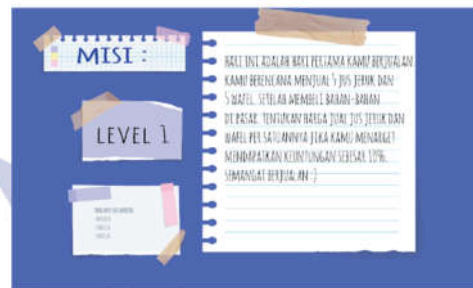 MISI :
LEVEL 1
HARI INI ADALAH HARI PERTAMA KAMU BERJUALAN.
KAMU BERENCANA MENJUAL 5 JUS JERUK DAN
5 WAFEL. SETELAH MEMBELI BAHAN-BAHAN
DI PASAR. TENTUKAN HARGA JUAL JUS JERUK DAN
WAFEL PER SATUANNYA JIKA KAMU MENARGET
MENDAPATKAN KEUNTUNGAN SEBESAR 10%.
SEMANGAT BERJUALAN :)